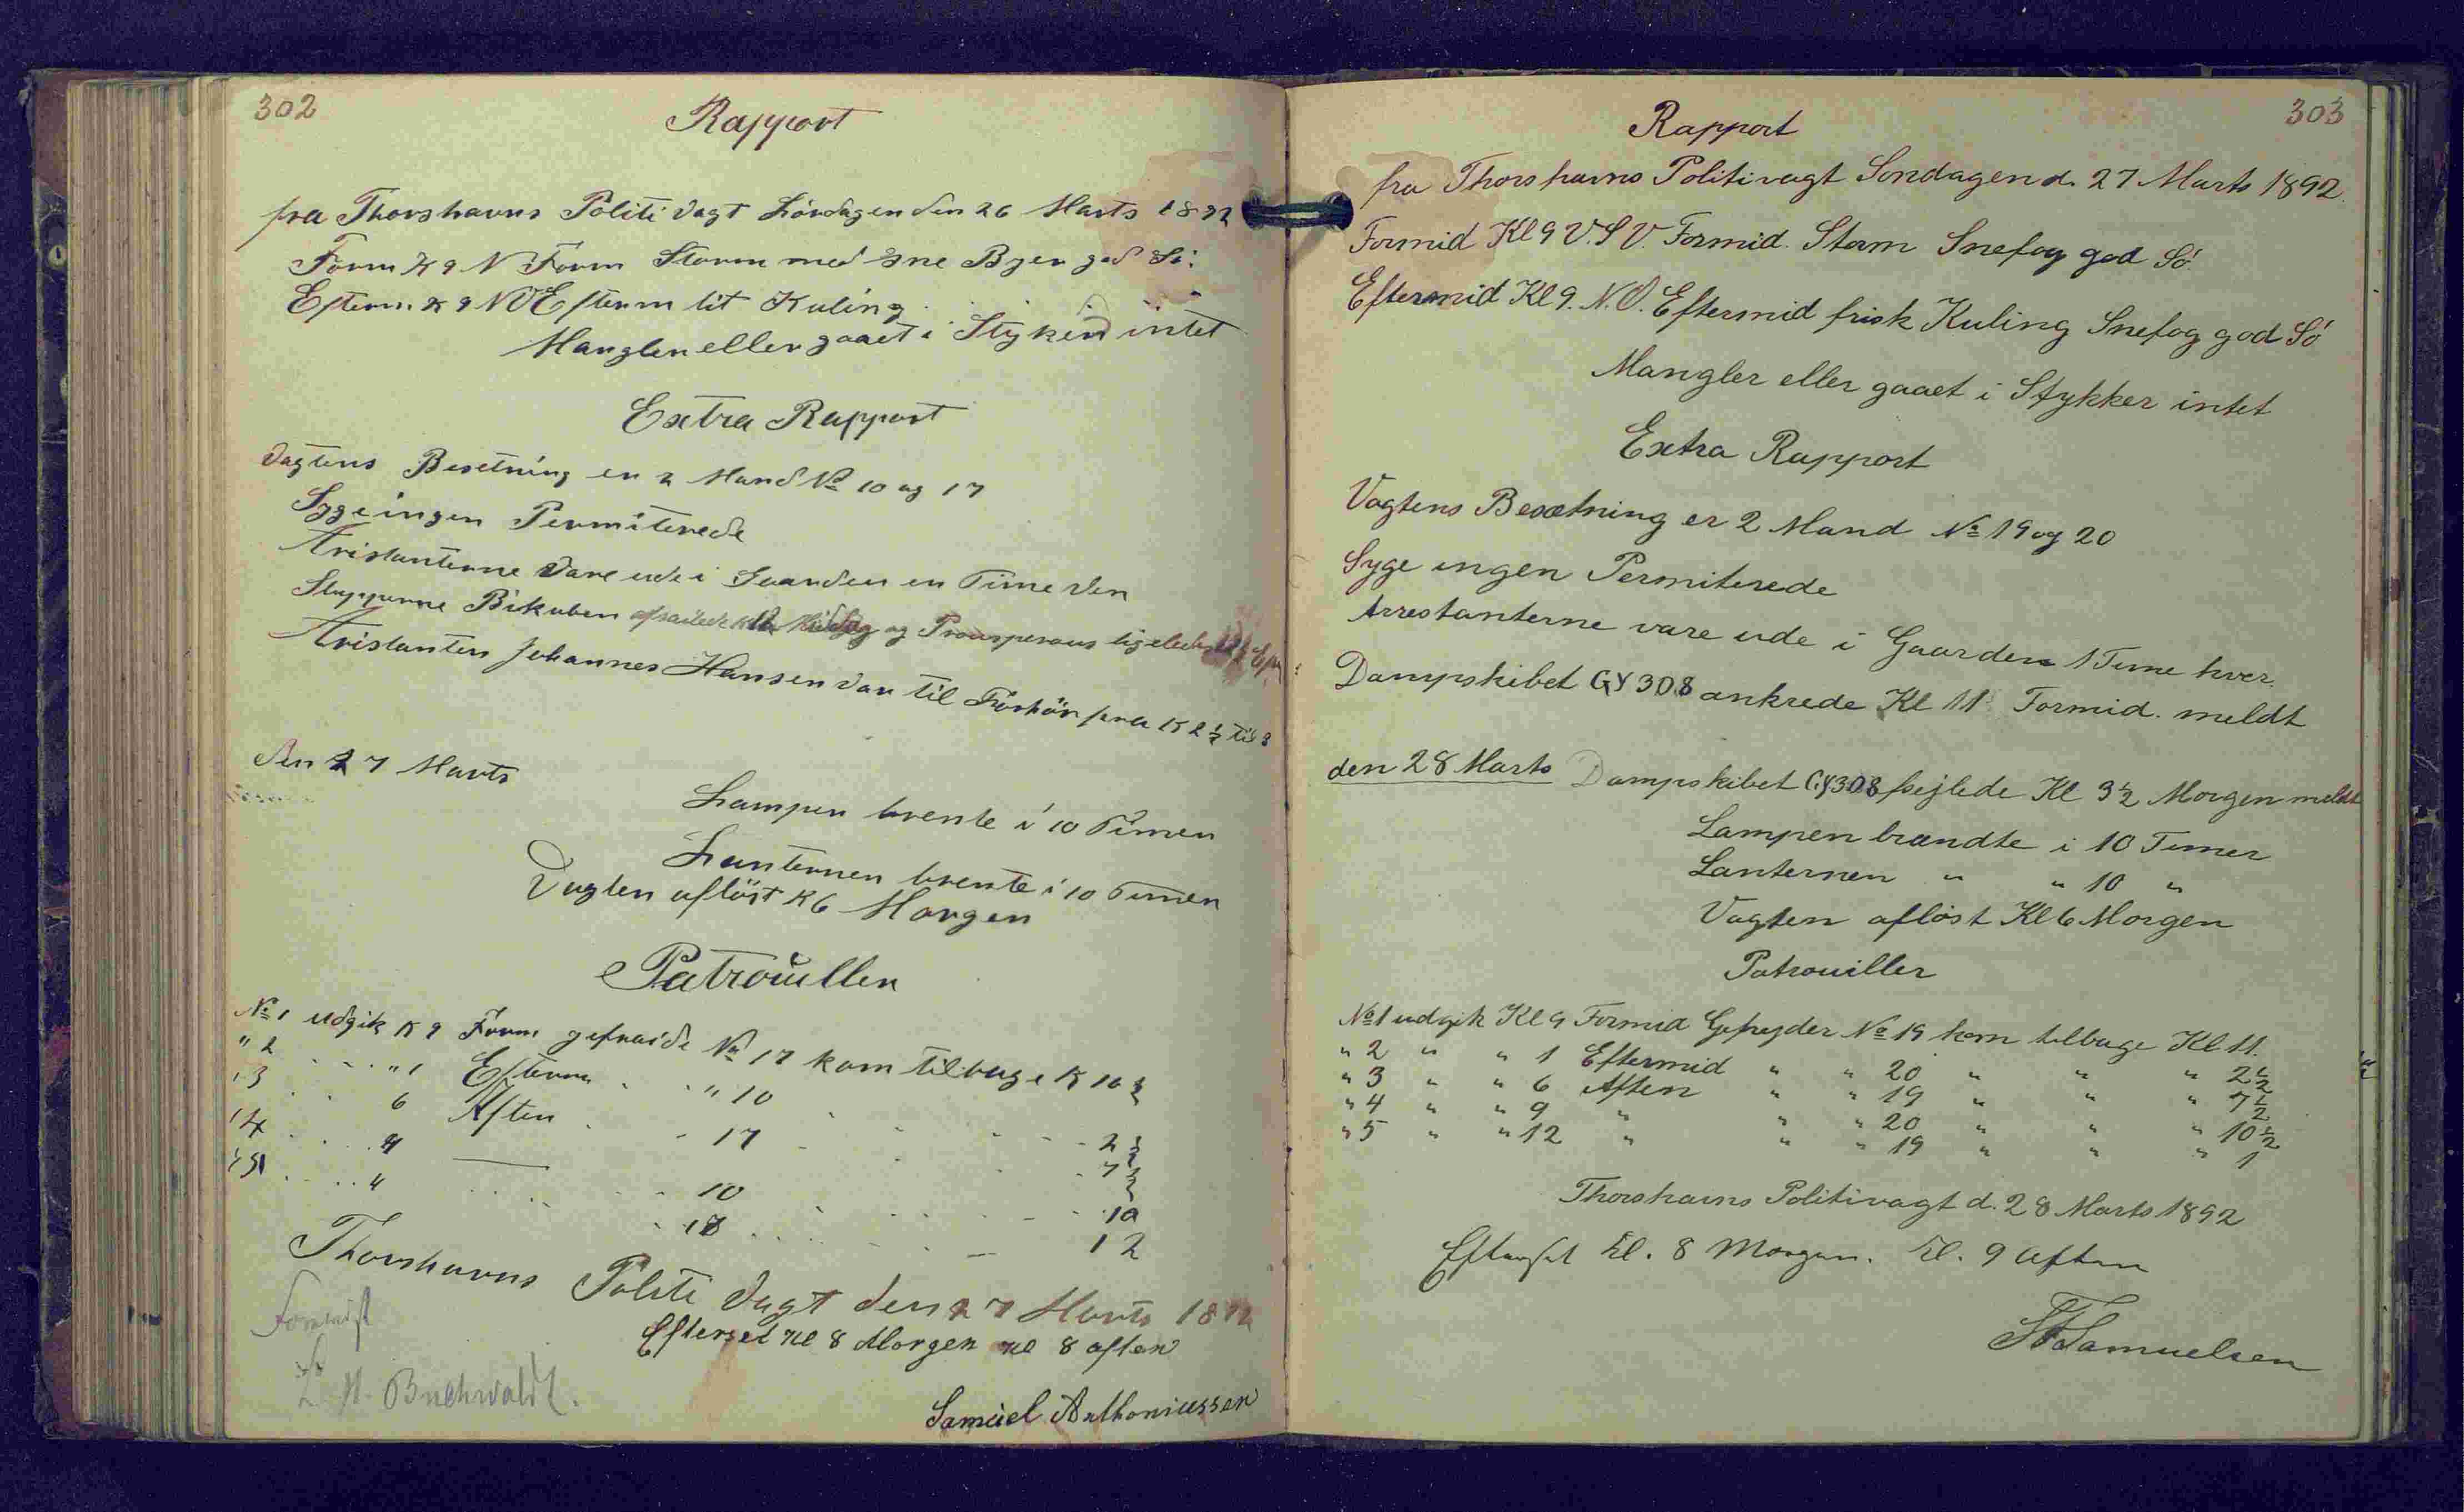 302
Rapport
fra Thorshavns Politi Vagt Lördagen den 26 Marts 1892
Form K 9 N Form Storm med Sne Byer god Sö.
Efterm. K 9 NO Efterm lit Kuling
Mangler eller gaaet i Styker intet
Extra Rapport
Vagtens Besetning er 2 Mand No 10 og 17
Syge ingen Permiterede
Aristanterne Vare ude i Gaarden en Time Ver
Slupperne Bikuben afseilede Kl Middag og Prousperous ligeledes
Aristanten Johannes Hansen var til Förhör fra K 2 1/2 til 3
den 27 Marts
Lampen brente i 10 Timer
Lanternen brente i 10 Timer
Vagten aflöst K 6 Morgen
Patrouiller
No 1 udgik K 9 Form gefraide No 17 kom tilbage K 10 1/2
" 2 " 1 Efterm " 10 2 1/2
" 3 6 Aften 17 7 1/2
" 4 9 — 10 10
" 5 " 17 12
Thorshavns Politi Vagt den 27 Marts 1892
Efterset Kl 8 Morgen Kl 8 aften
Foreviist
L. H. Buchwaldt.
Samuel Anthoniussen
303
Rapport
fra Thorshavns Politivagt Søndagen d. 27 Marts 1892.
Formid Kl 9 V.S.V. Formid. Storm Snefog god Sø
Eftermid Kl 9. N.O. Eftermid frisk Kuling Snefog god Sø
Mangler eller gaaet i Stykker intet
Extra Rapport
Vagtens Besætning er 2 Mand No 19 og 20
Syge ingen Permiterede
Arrestanterne vare ude i Gaarden 1 Time hver.
Dampskibet GY 308 ankrede Kl 11 Formid. meldt
den 28 Marts Dampskibet GY308 sejlede Kl 3 1/2 Morgen meldt
Lampen brændte i 10 Timer
Lanternen " " 10 "
Vagten afløst Kl 6 Morgen
Patrouiller
No 1 udgik Kl 9 Formid Gefrejder No 19 kom tilbage Kl 11.
" 2 " " 1 Eftermid " " 20 " " " 2 1/2
" 3 " " 6 Aften " " 19 " " " 7 1/2
" 4 " " 9 " " " 20 " " " 10 1/2
" 5 " " 12 " " " 19 " " " 1
Thorshavns Politivagt d. 28 Marts 1892
Efterset kl. 8 Morgen. kl. 9 Aften
Samuelsen